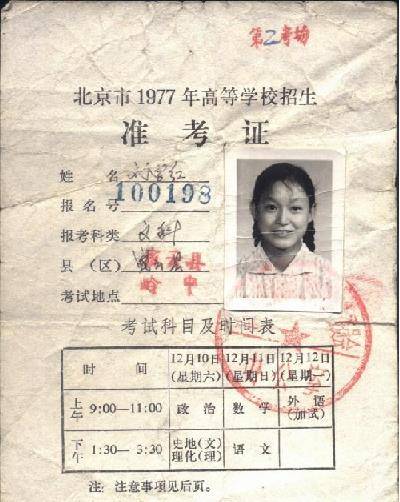 第2考场
北京市1977年高等学校招生
准考证
姓名
报名号 100198
报考科类 文科
县（区）
考试地点
考试科目及时间表
时间 12月10日(星期六) 12月11日(星期日) 12月12日(星期一)
上午 9:00—11:00 政治 数学 外语(加试)
下午 1:30—3:30 史地(文)理化(理) 语文
注：注意事项见后页。